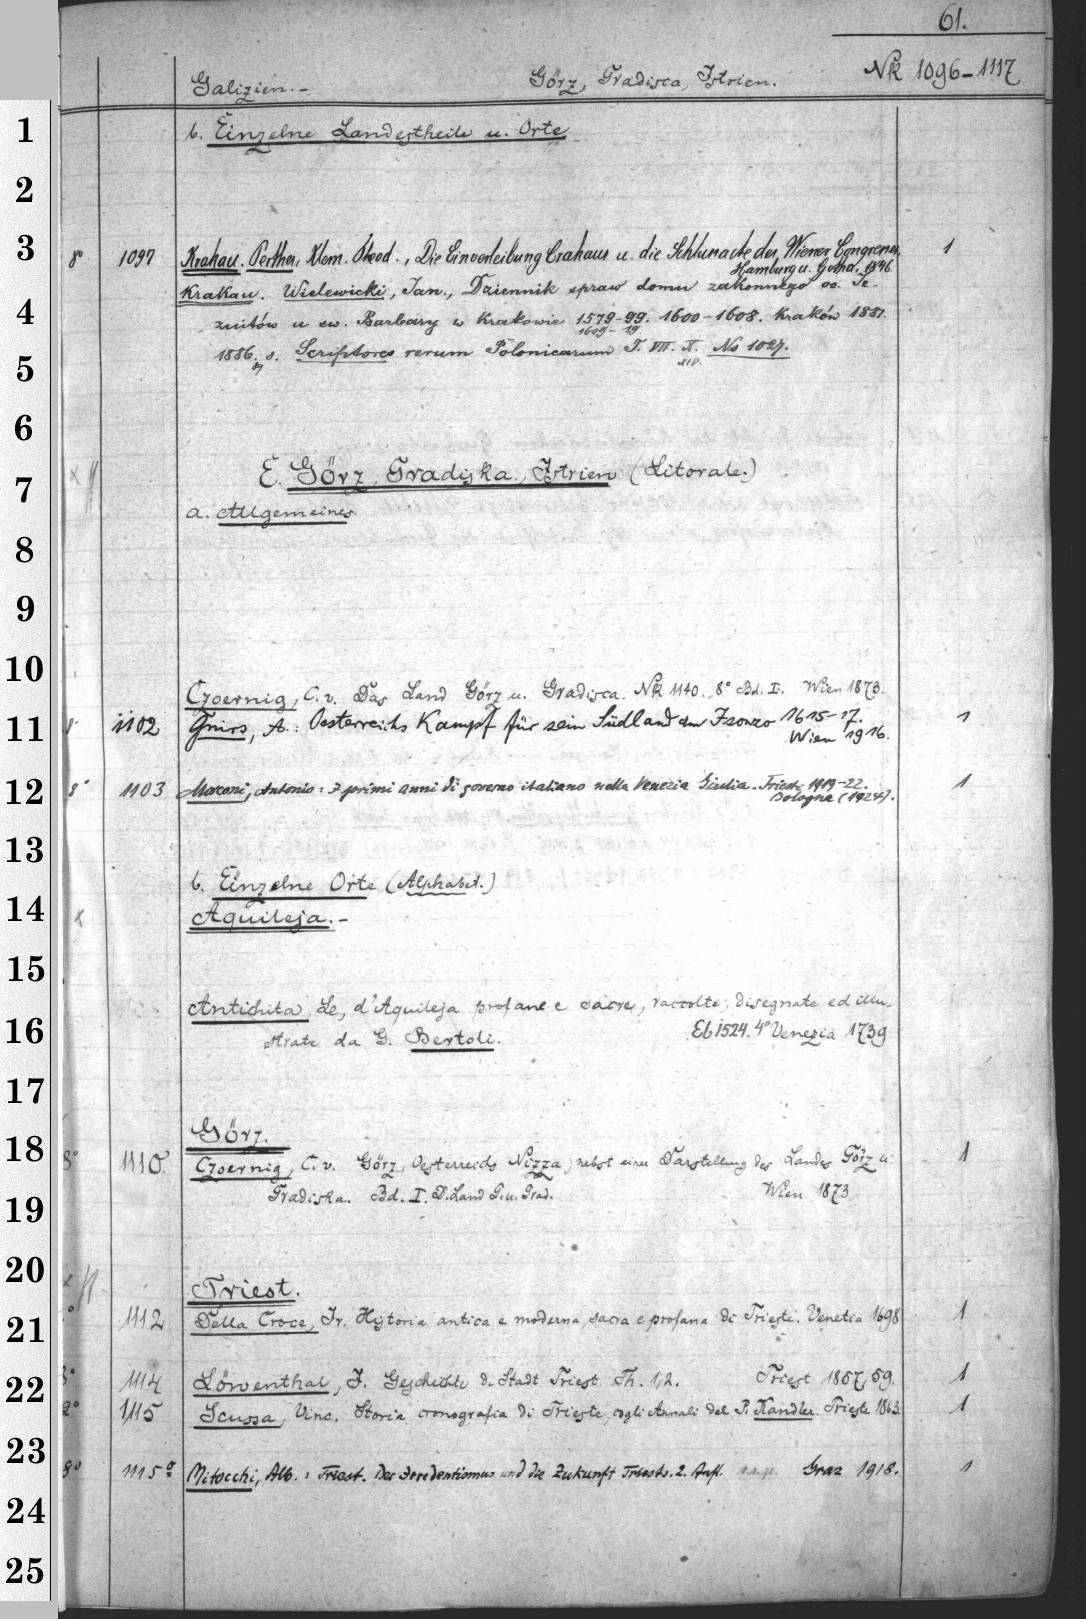 61.
Galizien.- Görz, Gradisca, Istrien. Nk 1096-1117
1
b. Einzelne Landestheile u. Orte
2
3 8° 1097 Krakau. Perthes, Klem. Theod., Die Einverleibung Crakaus u. die Schlussacte des Wiener Congresses, 1
Hamburg u. Gotha, 1846.
Krakau. Wielewicki, Jan., Dziennik spraw domu zakonnego oo. Je-
4 zuitów u św. Barbary w Krakowie 1579-99. 1600-1608. Kraków 1881.
1609-19
5 1886. s. Scriptores rerum Polonicarum T. VII. X. No 1027.
89 XIV.
6
7 E. Görz, Gradiska, Istrien (Litorale.)
a. Allgemeines.
8
9
10
Czoernig, C. v. Das Land Görz u. Gradisca. Nk 1140. 8° Bd. I. Wien 1873.
11 8° 1102 Gnirs, A.: Oesterreichs Kampf für sein Südland am Isonzo 1615-17. 1
Wien 1916.
12 8° 1103 Marconi, Antonio: I primi anni di governo italiano nella Venezia Giulia. Trieste 1919-22. 1
Bologna (1924).
13
b. Einzelne Orte (Alphabet.)
14 x Aquileja.-
15
Antichita, Le, d'Aquileja profane e sacre, raccolte, disegnate ed illu-
16 strate da G. Bertoli. Eb 1524. 4° Venezia 1739
17
Görz.
18 8° 1110. Czoernig, C. v. Görz, Oesterreichs Nizza, nebst einer Darstellung des Landes Görz u. 1
19 Gradiska. Bd. I. D. Land G. u. Grad. Wien 1873
20
Triest.
21 1112 Della Croce, Ir. Historia antica e moderna, sacra e profana di Trieste. Venetia 1698 1
22 8° 1114 Löwenthal, J. Geschichte d. Stadt Triest Th. 1, 2. Triest 1857, 59. 1
2° 1115 Scussa, Vinc. Storia cronografia di Trieste, cogli Annali del P. Kandler. Trieste 1863. 1
23
8° 1115a Mitocchi, Alb.: Triest. Der Irredentismus und die Zukunft Triests. 2. Aufl. Graz 1918. 1
24
25